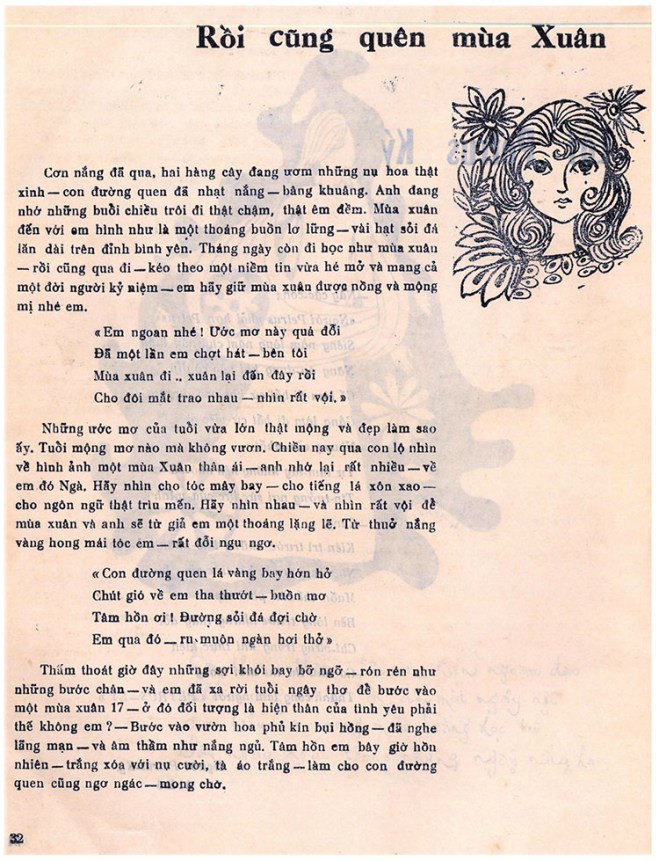 Rồi cũng quên mùa Xuân
Cơn nắng đã qua, hai hàng cây đang ươm những nụ hoa thật
xinh — con đường quen đã nhạt nắng — bâng khuâng. Anh đang
nhớ những buổi chiều trôi đi thật chậm, thật êm đềm. Mùa xuân
đến với em hình như là một thoáng buồn lơ lững — vài hạt sỏi đá
lăn dài trên đỉnh bình yên. Tháng ngày còn đi học như mùa xuâu
— rồi cũng qua đi — kéo theo một niềm tin vừa hé mở và mang cả
một đời người kỷ niệm — em hãy giữ mùa xuân được nồng và mộng
mị nhé em.
« Em ngoan nhé ! Ước mơ này quá đỗi
Đã một lần em chợt hát — bên tôi
Mùa xuân đi .. xuân lại đến đây rồi
Cho đôi mắt trao nhau — nhìn rất vội. »
Những ước mơ của tuổi vừa lớn thật mộng và đẹp làm sao
ấy. Tuổi mộng mơ nào mà không vươn. Chiều nay qua con lộ nhìn
về hình ảnh một mùa Xuân thân ái — anh nhớ lại rất nhiều — về
em đó Ngà. Hãy nhìn cho tóc mây bay — cho tiếng lá xôn xao —
cho ngôn ngữ thật trìu mến. Hãy nhìn nhau — và nhìn rất vội để
mùa xuân và anh sẽ từ giả em một thoáng lặng lẽ. Từ thuở nắng
vàng hong mái tóc em — rất đỗi ngu ngơ.
« Con đường quen lá vàng bay hớn hở
Chút gió về em tha thướt — buồn mơ
Tâm hồn ơi ! Đường sỏi đá đợi chờ
Em qua đó — ru muôn ngàn hơi thở »
Thấm thoát giờ đây những sợi khói bay bỡ ngỡ — rón rén như
những bước chân — và em đã xa rời tuổi ngây thơ để bước vào
một mùa xuân 17 — ở đó đối tượng là hiện thân của tình yêu phải
thế không em ? — Bước vào vườn hoa phủ kín bụi hồng — đã nghe
lãng mạn — và âm thầm như nắng ngủ. Tâm hồn em bây giờ hồn
nhiên — trắng xóa với nụ cười, tà áo trắng — làm cho con đường
quen cũng ngơ ngác — mong chờ.
32